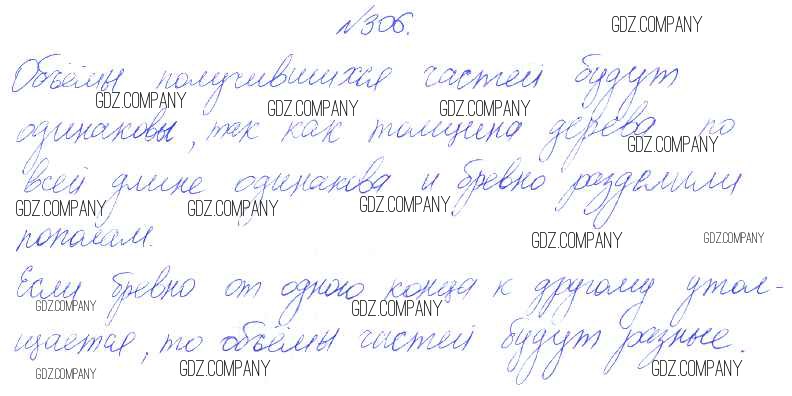 №306.
GDZ.COMPANY
Объёмы получившихся частей будут
GDZ.COMPANY GDZ.COMPANY GDZ.COMPANY
одинаковы, так как толщина дерева по
GDZ.COMPANY
всей длине одинакова и бревно разделили
GDZ.COMPANY GDZ.COMPANY GDZ.COMPANY
пополам.
GDZ.COMPANY GDZ.COMPANY
Если бревно от одного конца к другому утол-
GDZ.COMPANY GDZ.COMPANY
щается, то объёмы частей будут разные.
GDZ.COMPANY GDZ.COMPANY GDZ.COMPANY GDZ.COMPANY